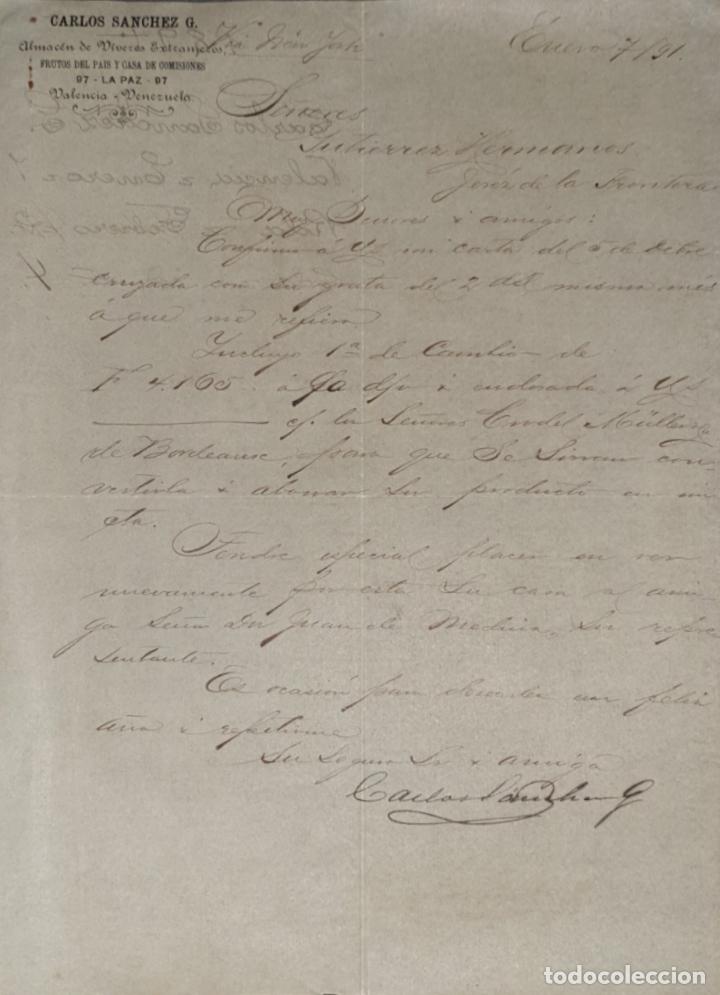 CARLOS SANCHEZ G.
Almacén de Víveres Extranjeros,
FRUTOS DEL PAIS Y CASA DE COMISIONES
97 - LA PAZ - 97
Valencia - Venezuela
Enero 7/91.
Señores
Gutierrez Hermanos
Jeréz de la Frontera
Muy Señores i amigos:
Confirmo á Vs mi carta del 5 de
cruzada con su grata del 2 del mismo més
á que me refiero
Incluyo 1ª de Cambio de
F 4.165. á d/v i endosada á Vs
c/. los Señores Müller
de Bordeaux, para que se sirvan con-
vertirla i abonar su producto en mi
cta.
Tendré especial placer en ver
nuevamente por esta su casa al ami-
go Señor Dn Juan de Medina, su repre-
sentante.
Es ocasión para desearles un feliz
año i repetirme
Su Seguro Sr i amigo
Carlos Sánchez G
todocoleccion